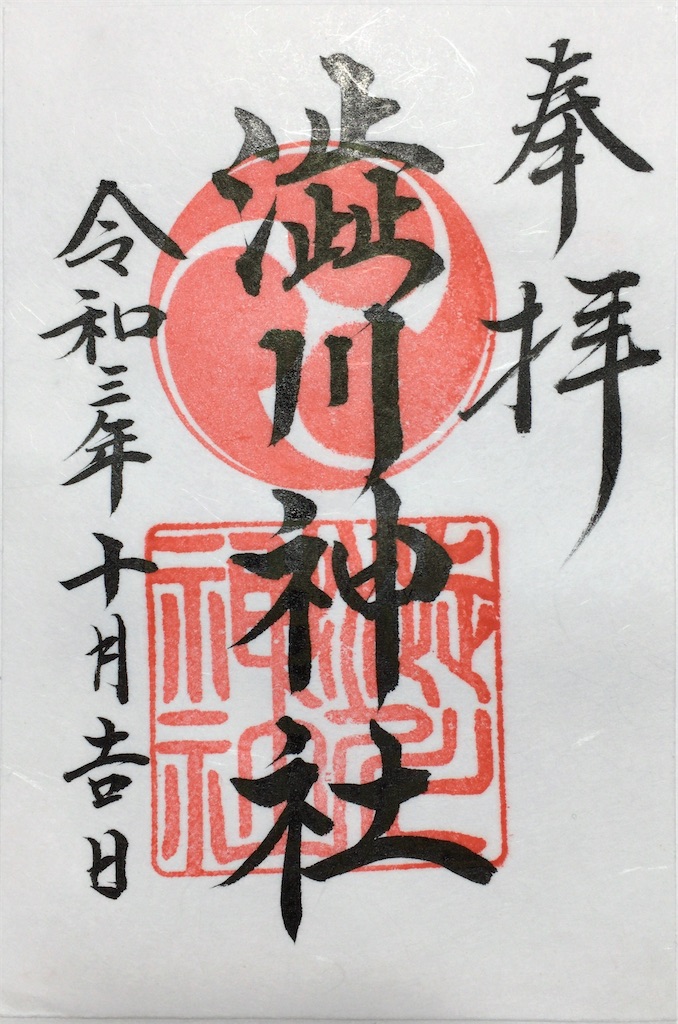 奉拝
澁川神社
令和三年十月吉日